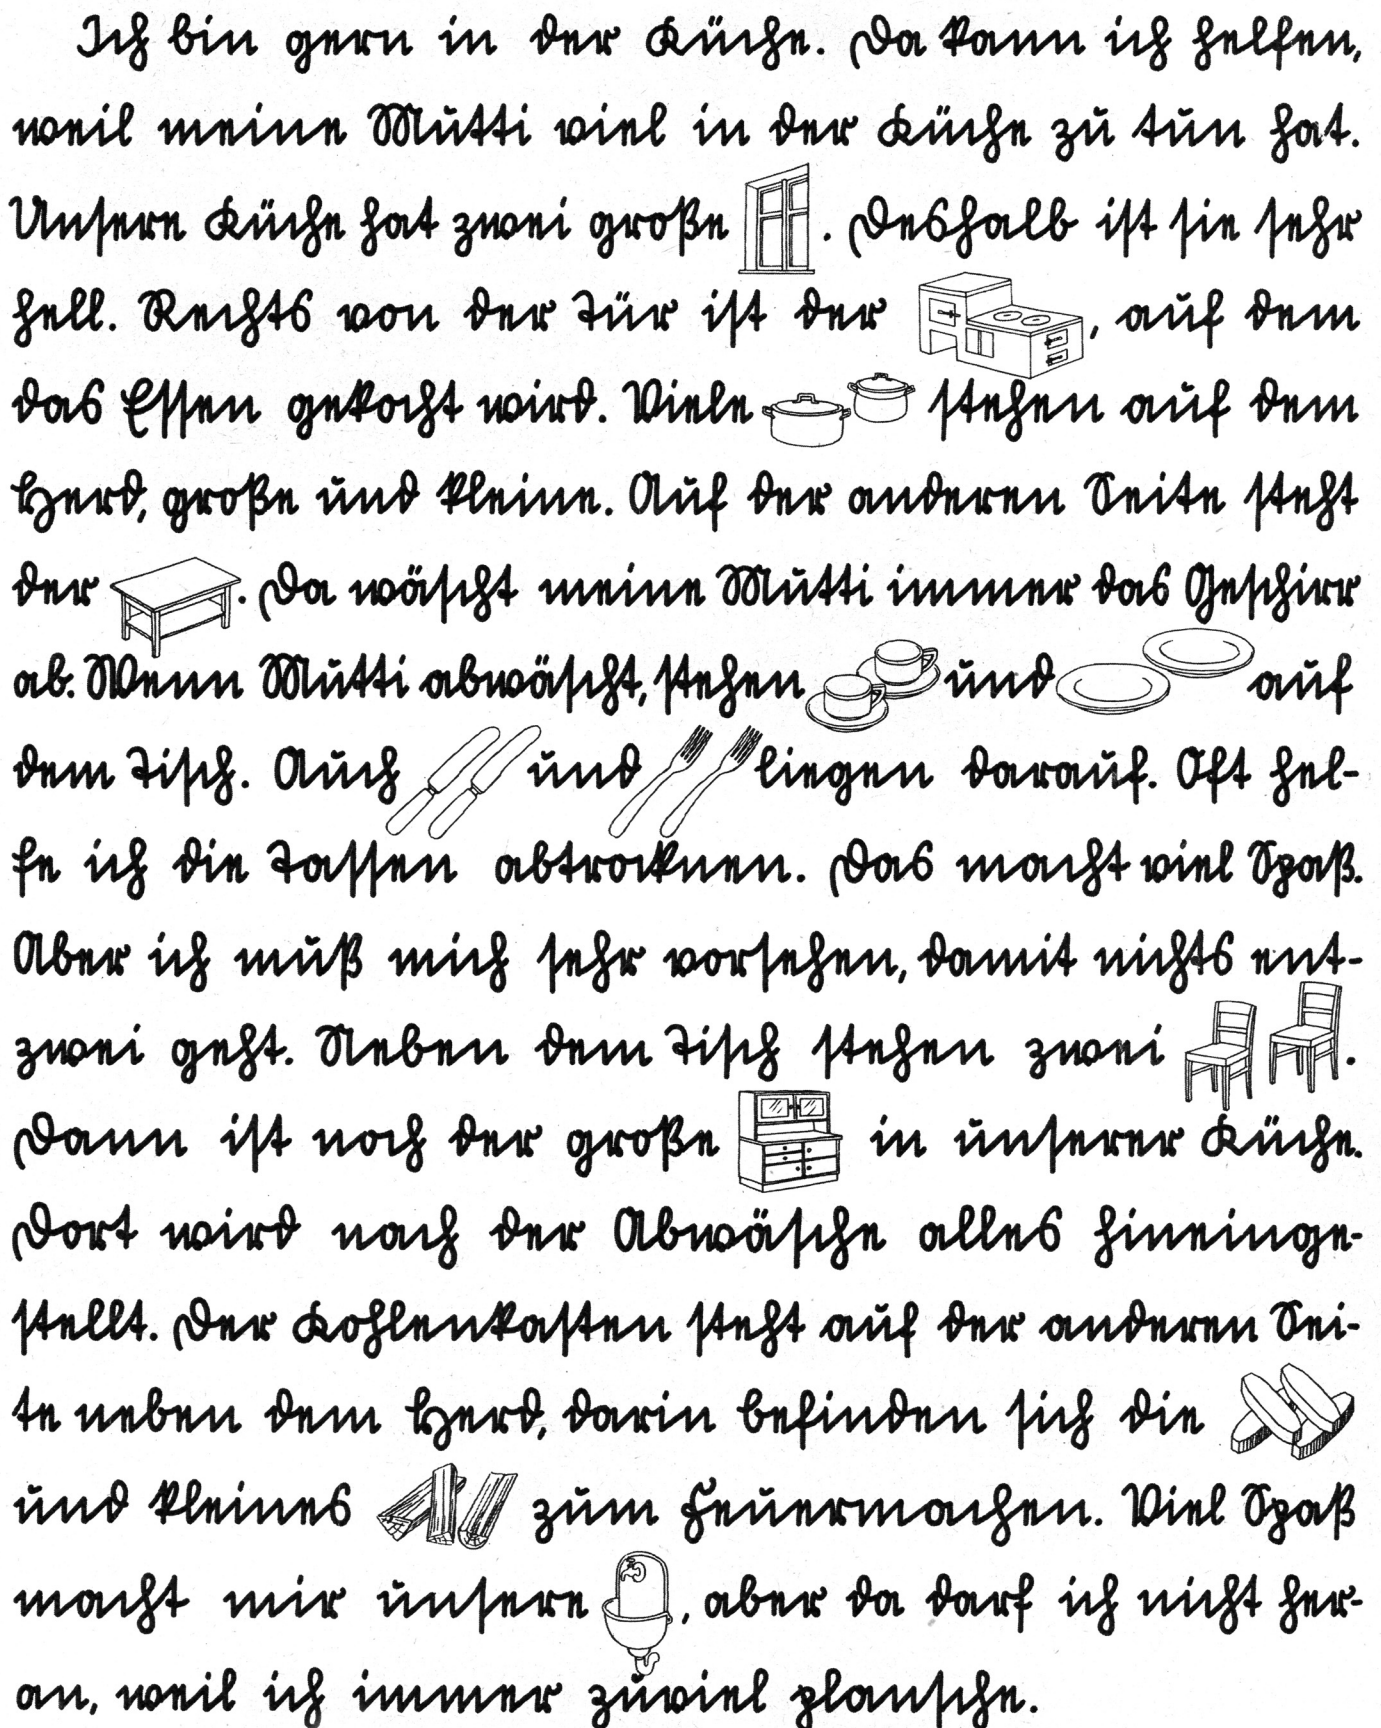 Ich bin gern in der Küche. Da kann ich helfen,
weil meine Mutti viel in der Küche zu tun hat.
Unsere Küche hat zwei große . Deshalb ist sie sehr
hell. Rechts von der Tür ist der , auf dem
das Essen gekocht wird. Viele stehen auf dem
Herd, große und kleine. Auf der anderen Seite steht
der . Da wäscht meine Mutti immer das Geschirr
ab. Wenn Mutti abwäscht, stehen und auf
dem Tisch. Auch und liegen darauf. Oft hel-
fe ich die Tassen abtrocknen. Das macht viel Spaß.
Aber ich muß mich sehr vorsehen, damit nichts ent-
zwei geht. Neben dem Tisch stehen zwei .
Dann ist noch der große in unserer Küche.
Dort wird nach der Abwäsche alles hineinge-
stellt. Der Kohlenkasten steht auf der anderen Sei-
te neben dem Herd, darin befinden sich die
und kleines zum Feuermachen. Viel Spaß
macht mir unsere , aber da darf ich nicht her-
an, weil ich immer zuviel plansche.